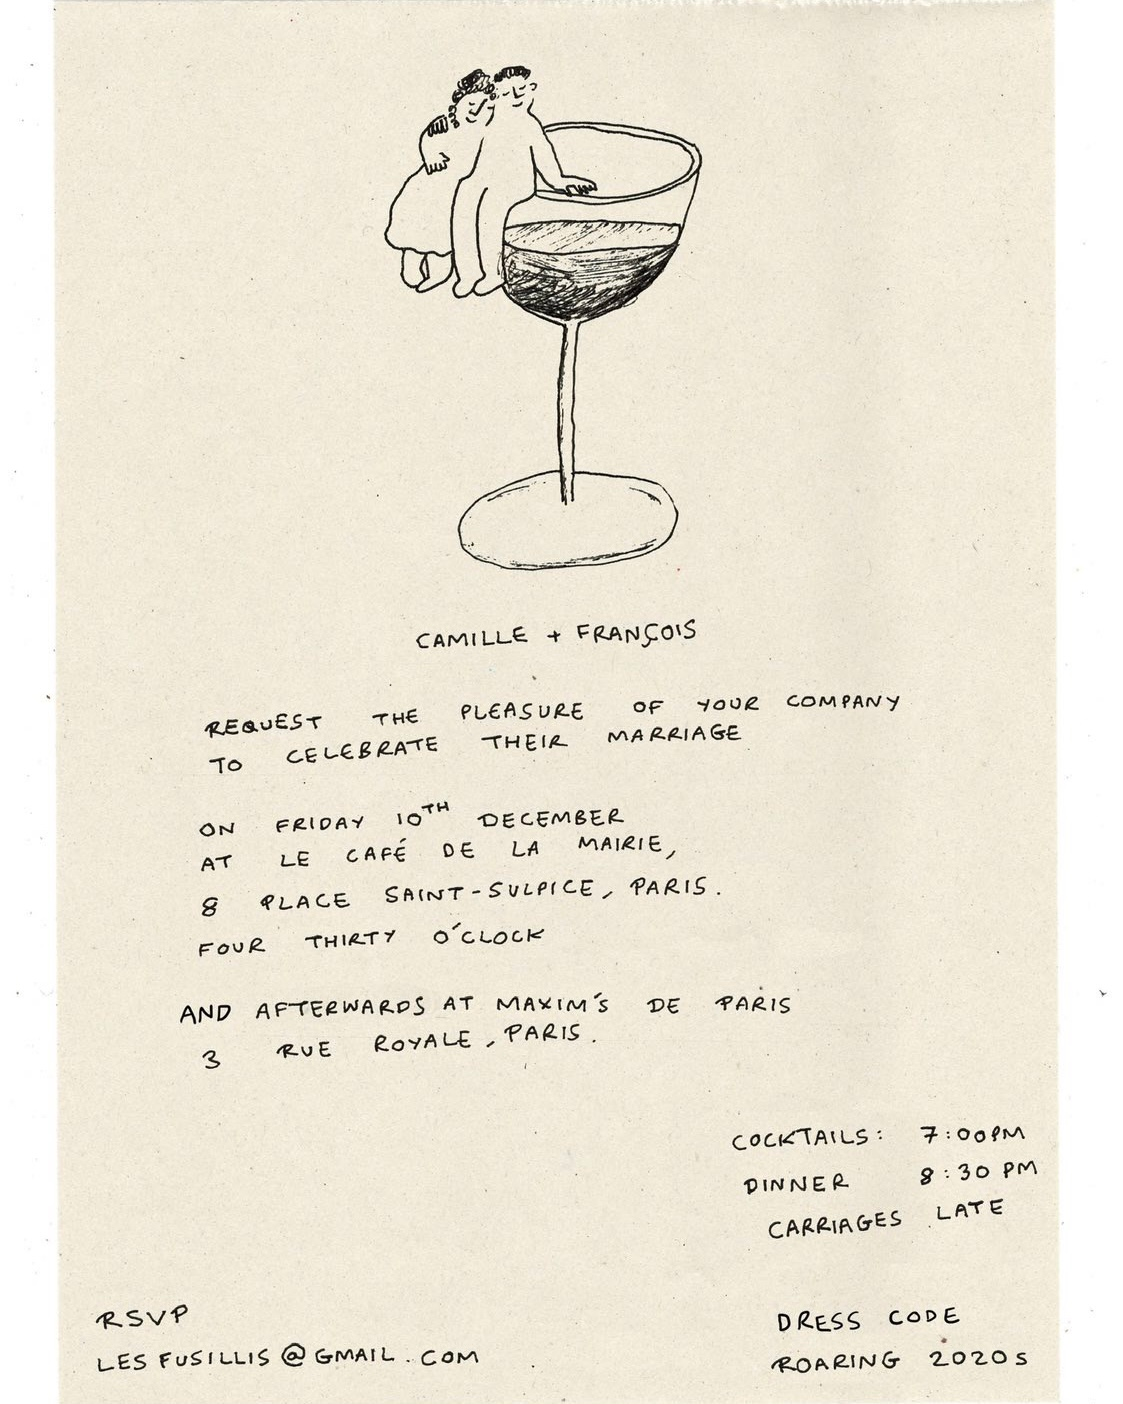 CAMILLE + FRANÇOIS
REQUEST THE PLEASURE OF YOUR COMPANY
TO CELEBRATE THEIR MARRIAGE
ON FRIDAY 10TH DECEMBER
AT LE CAFÉ DE LA MAIRIE,
8 PLACE SAINT-SULPICE, PARIS.
FOUR THIRTY O'CLOCK
AND AFTERWARDS AT MAXIM'S DE PARIS
3 RUE ROYALE, PARIS.
COCKTAILS: 7:00PM
DINNER 8:30 PM
CARRIAGES LATE
RSVP
LESFUSILLIS@GMAIL.COM
DRESS CODE
ROARING 2020s